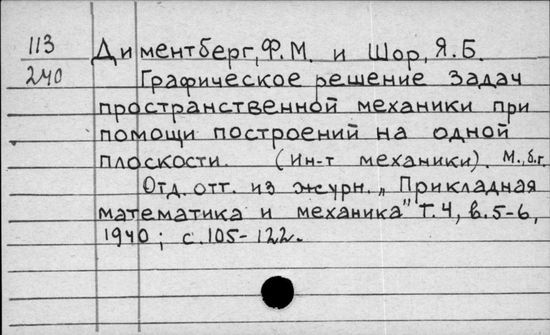 113
240
Диментберг, Ф.М. и Шор, Я.Б.
Графическое решение задач
пространственной механики при
помощи построений на одной
плоскости. (Ин-т механики). М., б.г.
Отд. отт. из журн. „Прикладная
математика и механика" Т.4, в.5-6,
1940; с.105-122.